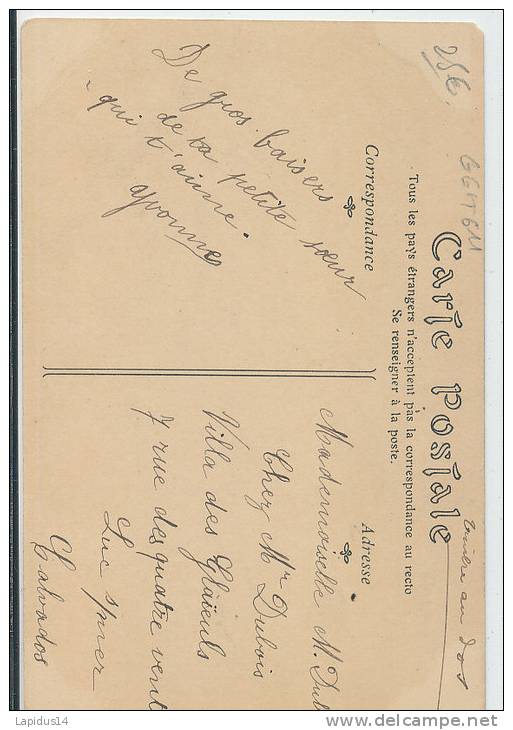 Carte Postale
Tous les pays étrangers n'acceptent pas la correspondance au recto
Se renseigner à la poste.
Correspondance
Adresse
25€
De gros baisers
de ta petite sœur
qui t'aime.
Yvonne
Mademoiselle M. Dub
Chez Mr Dubois
Villa des Glaïeuls
7 rue des quatre vent
Luc s/mer
Calvados
au dos
Lapidus14
www.delcampe.net